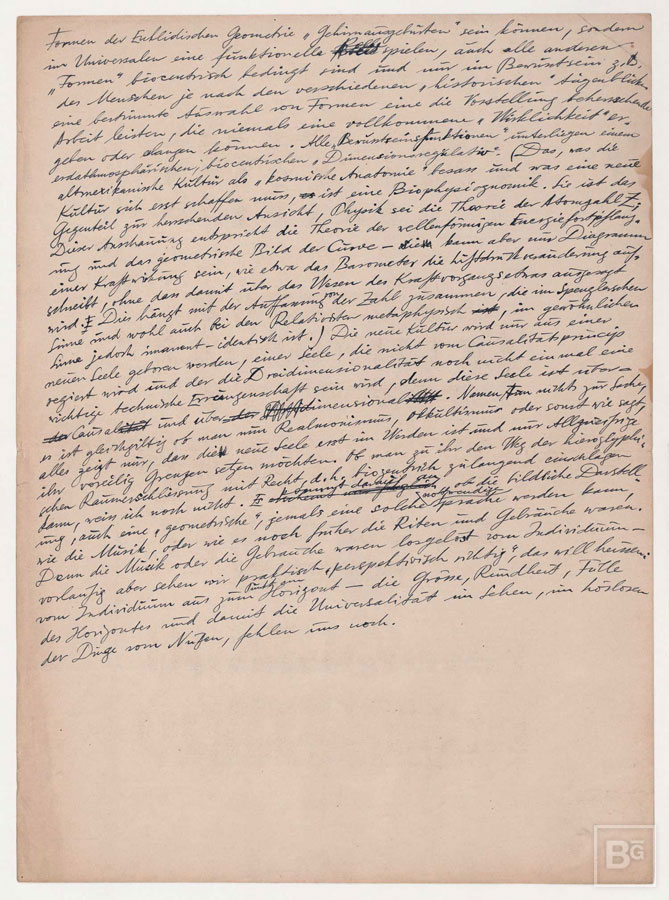 Formen der Euklidischen Geometrie „Gehirnausgeburten" sein können, sondern
im Universalen eine funktionelle spielen, auch alle anderen
„Formen" biocentrisch bedingt sind und nur im Bewustsein
des Menschen je nach den verschiedenen „historischen" Augenblicken
eine bestimmte Auswahl von Formen eine die Vorstellung beherrschende
Arbeit leisten, die niemals eine vollkommene „Wirklichkeit" er-
geben oder erlangen können. Alle „Bewustseinsfunktionen" unterliegen einem
erdatmosphärischen, biocentrischen „Dimensionsregulativ". (Das, was die
altmexikanische Kultur als „kosmische Anatomie" besass und was eine neue
Kultur sich erst schaffen muss, ist eine Biophysiognomik. Sie ist das
Gegenteil zur herrschenden Ansicht, Physik sei die Theorie der Atomzahl
Dieser Anschauung entspricht die Theorie der wellenförmigen Energiefortpflanz-
ung und das geometrische Bild der Curve – kann aber nur Diagramm
einer Kraftwirkung sein, wie etwa das Barometer die Luftdruckveränderung auf-
schreibt, ohne dass damit über das Wesen des Kraftvorgangs etwas ausgesagt
wird. Dies hängt mit der Auffassung von der Zahl zusammen, die im Spenglerschen
Sinne und wohl auch bei den Relativisten metaphysisch ist, im gewöhnlichen
Sinne jedoch imanent-identisch ist.) Die neue Kultur wird nur aus einer
neuen Seele geboren werden, einer Seele, die nicht vom Causalitätsprincip
regiert wird und der die Dreidimensionalität noch nicht einmal eine
wichtige technische Errungenschaft sein wird, denn diese Seele ist über-
Causal und über dimensional. Namen tun nichts zur Sache,
es ist gleichgiltig ob man nun Realmonismus, Okkultismus oder sonst wie sagt,
alles zeigt nur, dass die neue Seele erst im Werden ist und nur Allzueifrige
ihr voreilig Grenzen setzen möchten. Ob man zu ihr den Weg der hieroglyphi-
schen Raumerschliesung mit Recht, d.h. biozentrisch zulangend einschlagen
kann, weiss ich noch nicht. ob die bildliche Darstell-
ung, auch eine „geometrische", jemals eine solche notwendige Sprache werden kann,
wie die Musik, oder wie es noch früher die Riten und Gebräuche waren.
Denn die Musik oder die Gebräuche waren losgelöst vom Individuum –
vorläufig aber sehen wir praktisch „perspektivisch richtig", das will heissen:
vom Individuum aus zum Punkt am Horizont – die Grösse, Rundheit, Fülle
des Horizontes und damit die Universalität im Sehen, im Loslösen
der Dinge vom Nutzen, fehlen uns noch.
BG